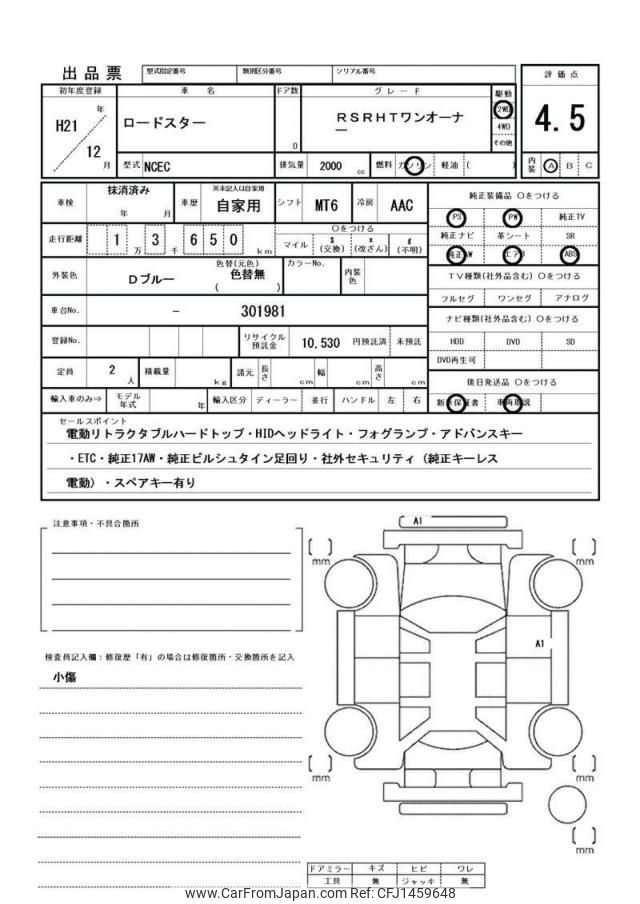 出品票
型式指定番号 類別区分番号 シリアル番号
評価点
4.5
初年度登録 車名 ドア数 グレード 駆動
H21 年 12 月
ロードスター
D
RSRHTワンオーナ
ー
2WD
4WD
その他
型式 NCEC 排気量 2000 cc 燃料 ガソリン 軽油 ( )
内装 A B C
車検 抹消済み 年 月
車歴 ※未記入は自家用 自家用
シフト MT6 冷房 AAC
純正装備品 ○をつける
PS PW 純正TV
純正ナビ 革シート SR
純正AW エアB ABS
走行距離 1 万 3 千 650 km
○をつける
マイル $ (交換) x (改ざん) # (不明)
外装色 Dブルー 色替(元色) 色替無 ( )
カラーNo. 内装色
TV種類(社外品含む) ○をつける
フルセグ ワンセグ アナログ
車台No. － 301981
ナビ種類(社外品含む) ○をつける
HDD DVD SD
DVD再生可
登録No. リサイクル預託金 10,530 円預託済 未預託
定員 2 人 積載量 kg 諸元 長さ cm 幅 cm 高さ cm
後日発送品 ○をつける
新車保証書 車両取説
輸入車のみ⇒ モデル年式 年 輸入区分 ディーラー 並行 ハンドル 左 右
セールスポイント
電動リトラクタブルハードトップ・HIDヘッドライト・フォグランプ・アドバンスキー
・ETC・純正17AW・純正ビルシュタイン足回り・社外セキュリティ（純正キーレス
電動）・スペアキー有り
注意事項・不具合箇所
検査員記入欄：修復歴「有」の場合は修復箇所・交換箇所を記入
小傷
A1
mm
mm
A1
mm
mm
mm
ドアミラー キズ ヒビ ワレ
工具 無 ジャッキ 無
www.CarFromJapan.com CFJ1459648